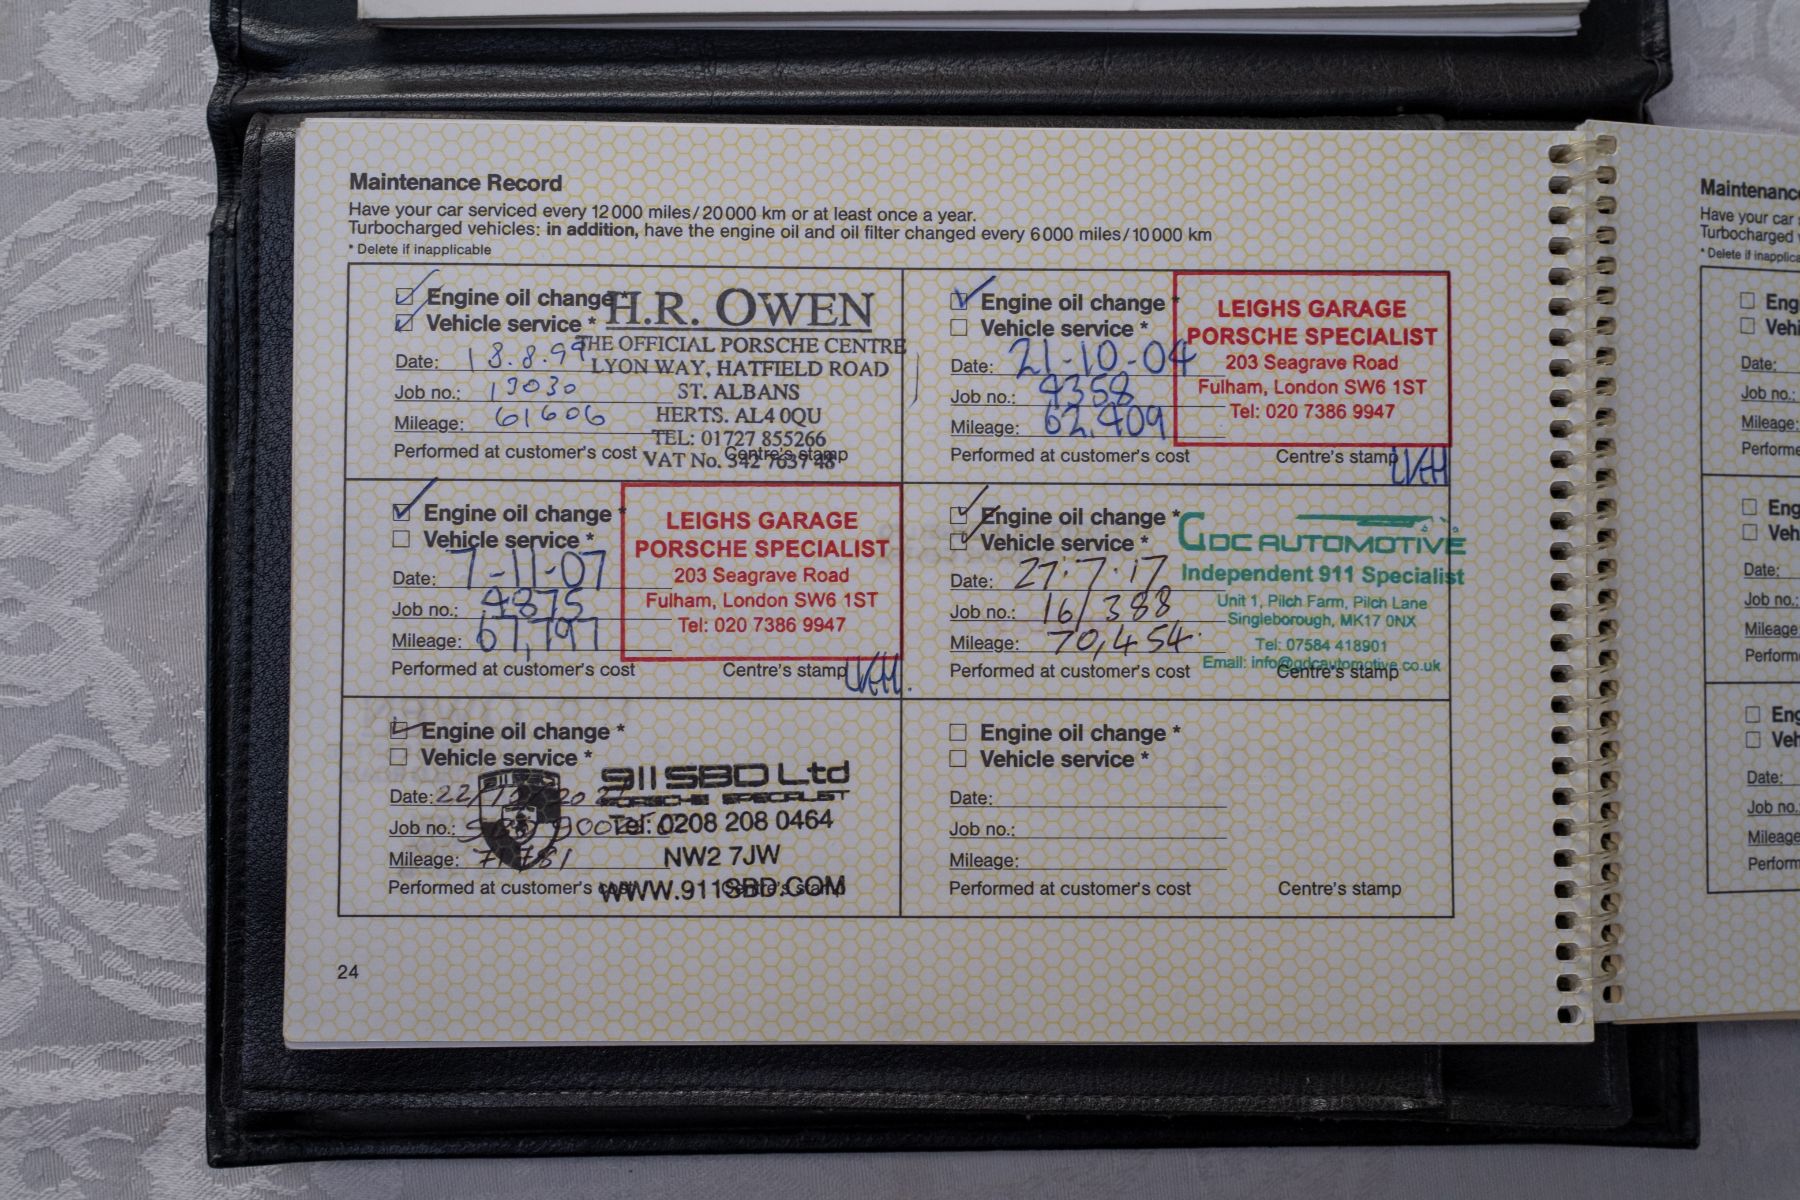 Maintenance Record
Have your car serviced every 12 000 miles/20 000 km or at least once a year.
Turbocharged vehicles: in addition, have the engine oil and oil filter changed every 6 000 miles/10 000 km
* Delete if inapplicable
Engine oil change *
Vehicle service *
Date: 18.8.99
Job no.: 19030
Mileage: 61606
Performed at customer's cost
Centre's stamp
H.R. OWEN
THE OFFICIAL PORSCHE CENTRE
LYON WAY, HATFIELD ROAD
ST. ALBANS
HERTS. AL4 0QU
TEL: 01727 855266
VAT No. 342 7637 48
Engine oil change *
Vehicle service *
Date: 21-10-04
Job no.: 4358
Mileage: 62,409
Performed at customer's cost
Centre's stamp
LEIGHS GARAGE
PORSCHE SPECIALIST
203 Seagrave Road
Fulham, London SW6 1ST
Tel: 020 7386 9947
Engine oil change *
Vehicle service *
Date: 7-11-07
Job no.: 4875
Mileage: 67,797
Performed at customer's cost
Centre's stamp
LEIGHS GARAGE
PORSCHE SPECIALIST
203 Seagrave Road
Fulham, London SW6 1ST
Tel: 020 7386 9947
Engine oil change *
Vehicle service *
Date: 27.7.17
Job no.: 16/388
Mileage: 70,454
Performed at customer's cost
Centre's stamp
GDC AUTOMOTIVE
Independent 911 Specialist
Unit 1, Pilch Farm, Pilch Lane
Singleborough, MK17 0NX
Tel: 07584 418901
Email: info@gdcautomotive.co.uk
Engine oil change *
Vehicle service *
Date:
Job no.:
Mileage:
Performed at customer's cost
Centre's stamp
911SBD Ltd
PORSCHE SPECIALIST
Tel: 0208 208 0464
NW2 7JW
WWW.911SBD.COM
Engine oil change *
Vehicle service *
Date:
Job no.:
Mileage:
Performed at customer's cost
Centre's stamp
24
Maintenance
Have your car
Turbocharged
* Delete if inapplica
Eng
Vehi
Date:
Job no.:
Mileage:
Performe
Eng
Veh
Date:
Job no.:
Mileage
Perform
Eng
Veh
Date:
Job no.:
Mileage
Perform